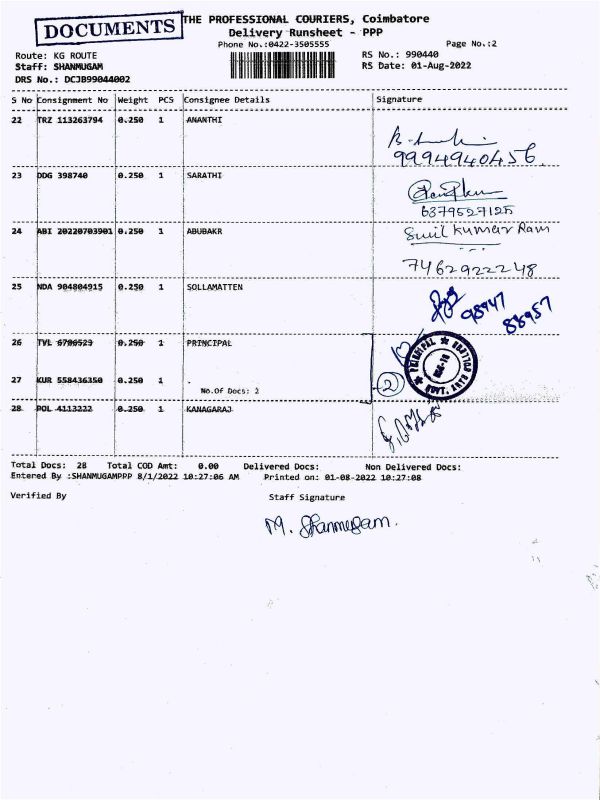 DOCUMENTS
THE PROFESSIONAL COURIERS, Coimbatore
Delivery Runsheet - PPP
Phone No.:0422-3505555 Page No.:2
Route: KG ROUTE RS No.: 990440
Staff: SHANMUGAM RS Date: 01-Aug-2022
DRS No.: DCJB99044002
S No Consignment No Weight PCS Consignee Details Signature
22 TRZ 113263794 0.250 1 ANANTHI
9994940456
23 DDG 398740 0.250 1 SARATHI
6379527125
24 ABI 20220703901 0.250 1 ABUBAKR Sunil Kumar Ram
7462922248
25 NDA 904804915 0.250 1 SOLLAMATTEN
98947
88957
26 TVL 6786529 0.250 1 PRINCIPAL
PRINCIPAL
GOVT. ARTS COLLEGE
27 KUR 558436350 0.250 1 . 2
No.Of Docs: 2
28 POL 4113222 0.250 1 KANAGARAJ
Total Docs: 28 Total COD Amt: 0.00 Delivered Docs: Non Delivered Docs:
Entered By :SHANMUGAMPPP 8/1/2022 10:27:06 AM Printed on: 01-08-2022 10:27:08
Verified By Staff Signature
M. Shanmugam.